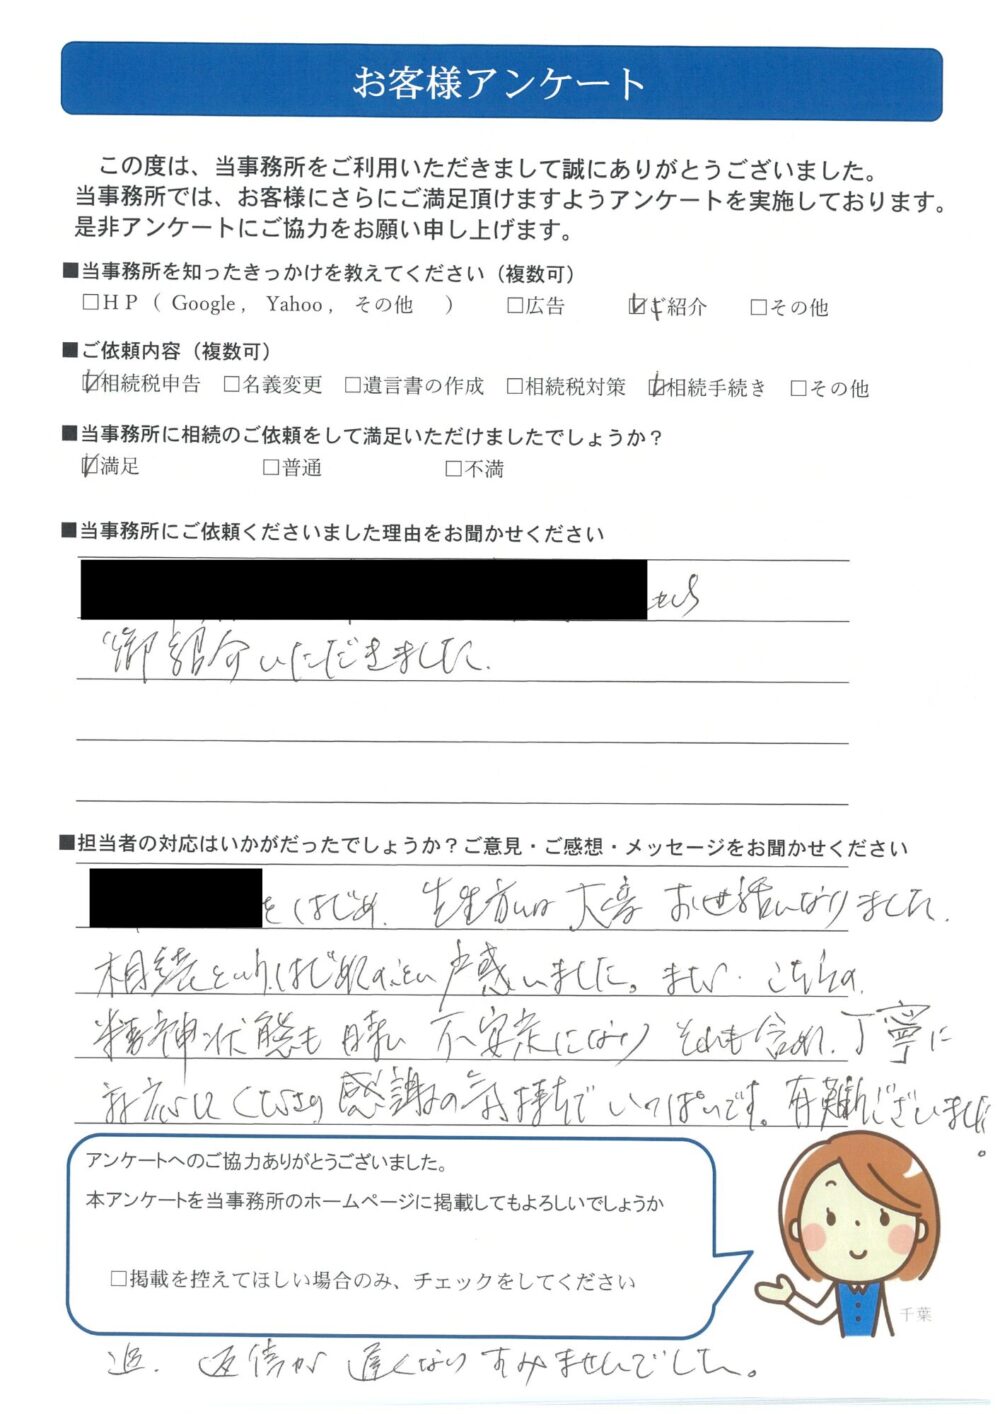 お客様アンケート
この度は、当事務所をご利用いただきまして誠にありがとうございました。
当事務所では、お客様にさらにご満足頂けますようアンケートを実施しております。
是非アンケートにご協力をお願い申し上げます。
■当事務所を知ったきっかけを教えてください（複数可）
□ＨＰ（ Google , Yahoo , その他 ） □広告 ☑ご紹介 □その他
■ご依頼内容（複数可）
☑相続税申告 □名義変更 □遺言書の作成 □相続税対策 ☑相続手続き □その他
■当事務所に相続のご依頼をして満足いただけましたでしょうか？
☑満足 □普通 □不満
■当事務所にご依頼くださいました理由をお聞かせください
御紹介いただきました.
■担当者の対応はいかがだったでしょうか？ご意見・ご感想・メッセージをお聞かせください
をはじめ、先生方には大変お世話になりました.
相続というはじめてのことに戸惑いました。また、こちらの
精神状態も 不安定になり それも含め、丁寧に
対応してくださり感謝の気持ちでいっぱいです。有難うございました。
アンケートへのご協力ありがとうございました。
本アンケートを当事務所のホームページに掲載してもよろしいでしょうか
□掲載を控えてほしい場合のみ、チェックをしてください
千葉
追. 返信が遅くなりすみませんでした。